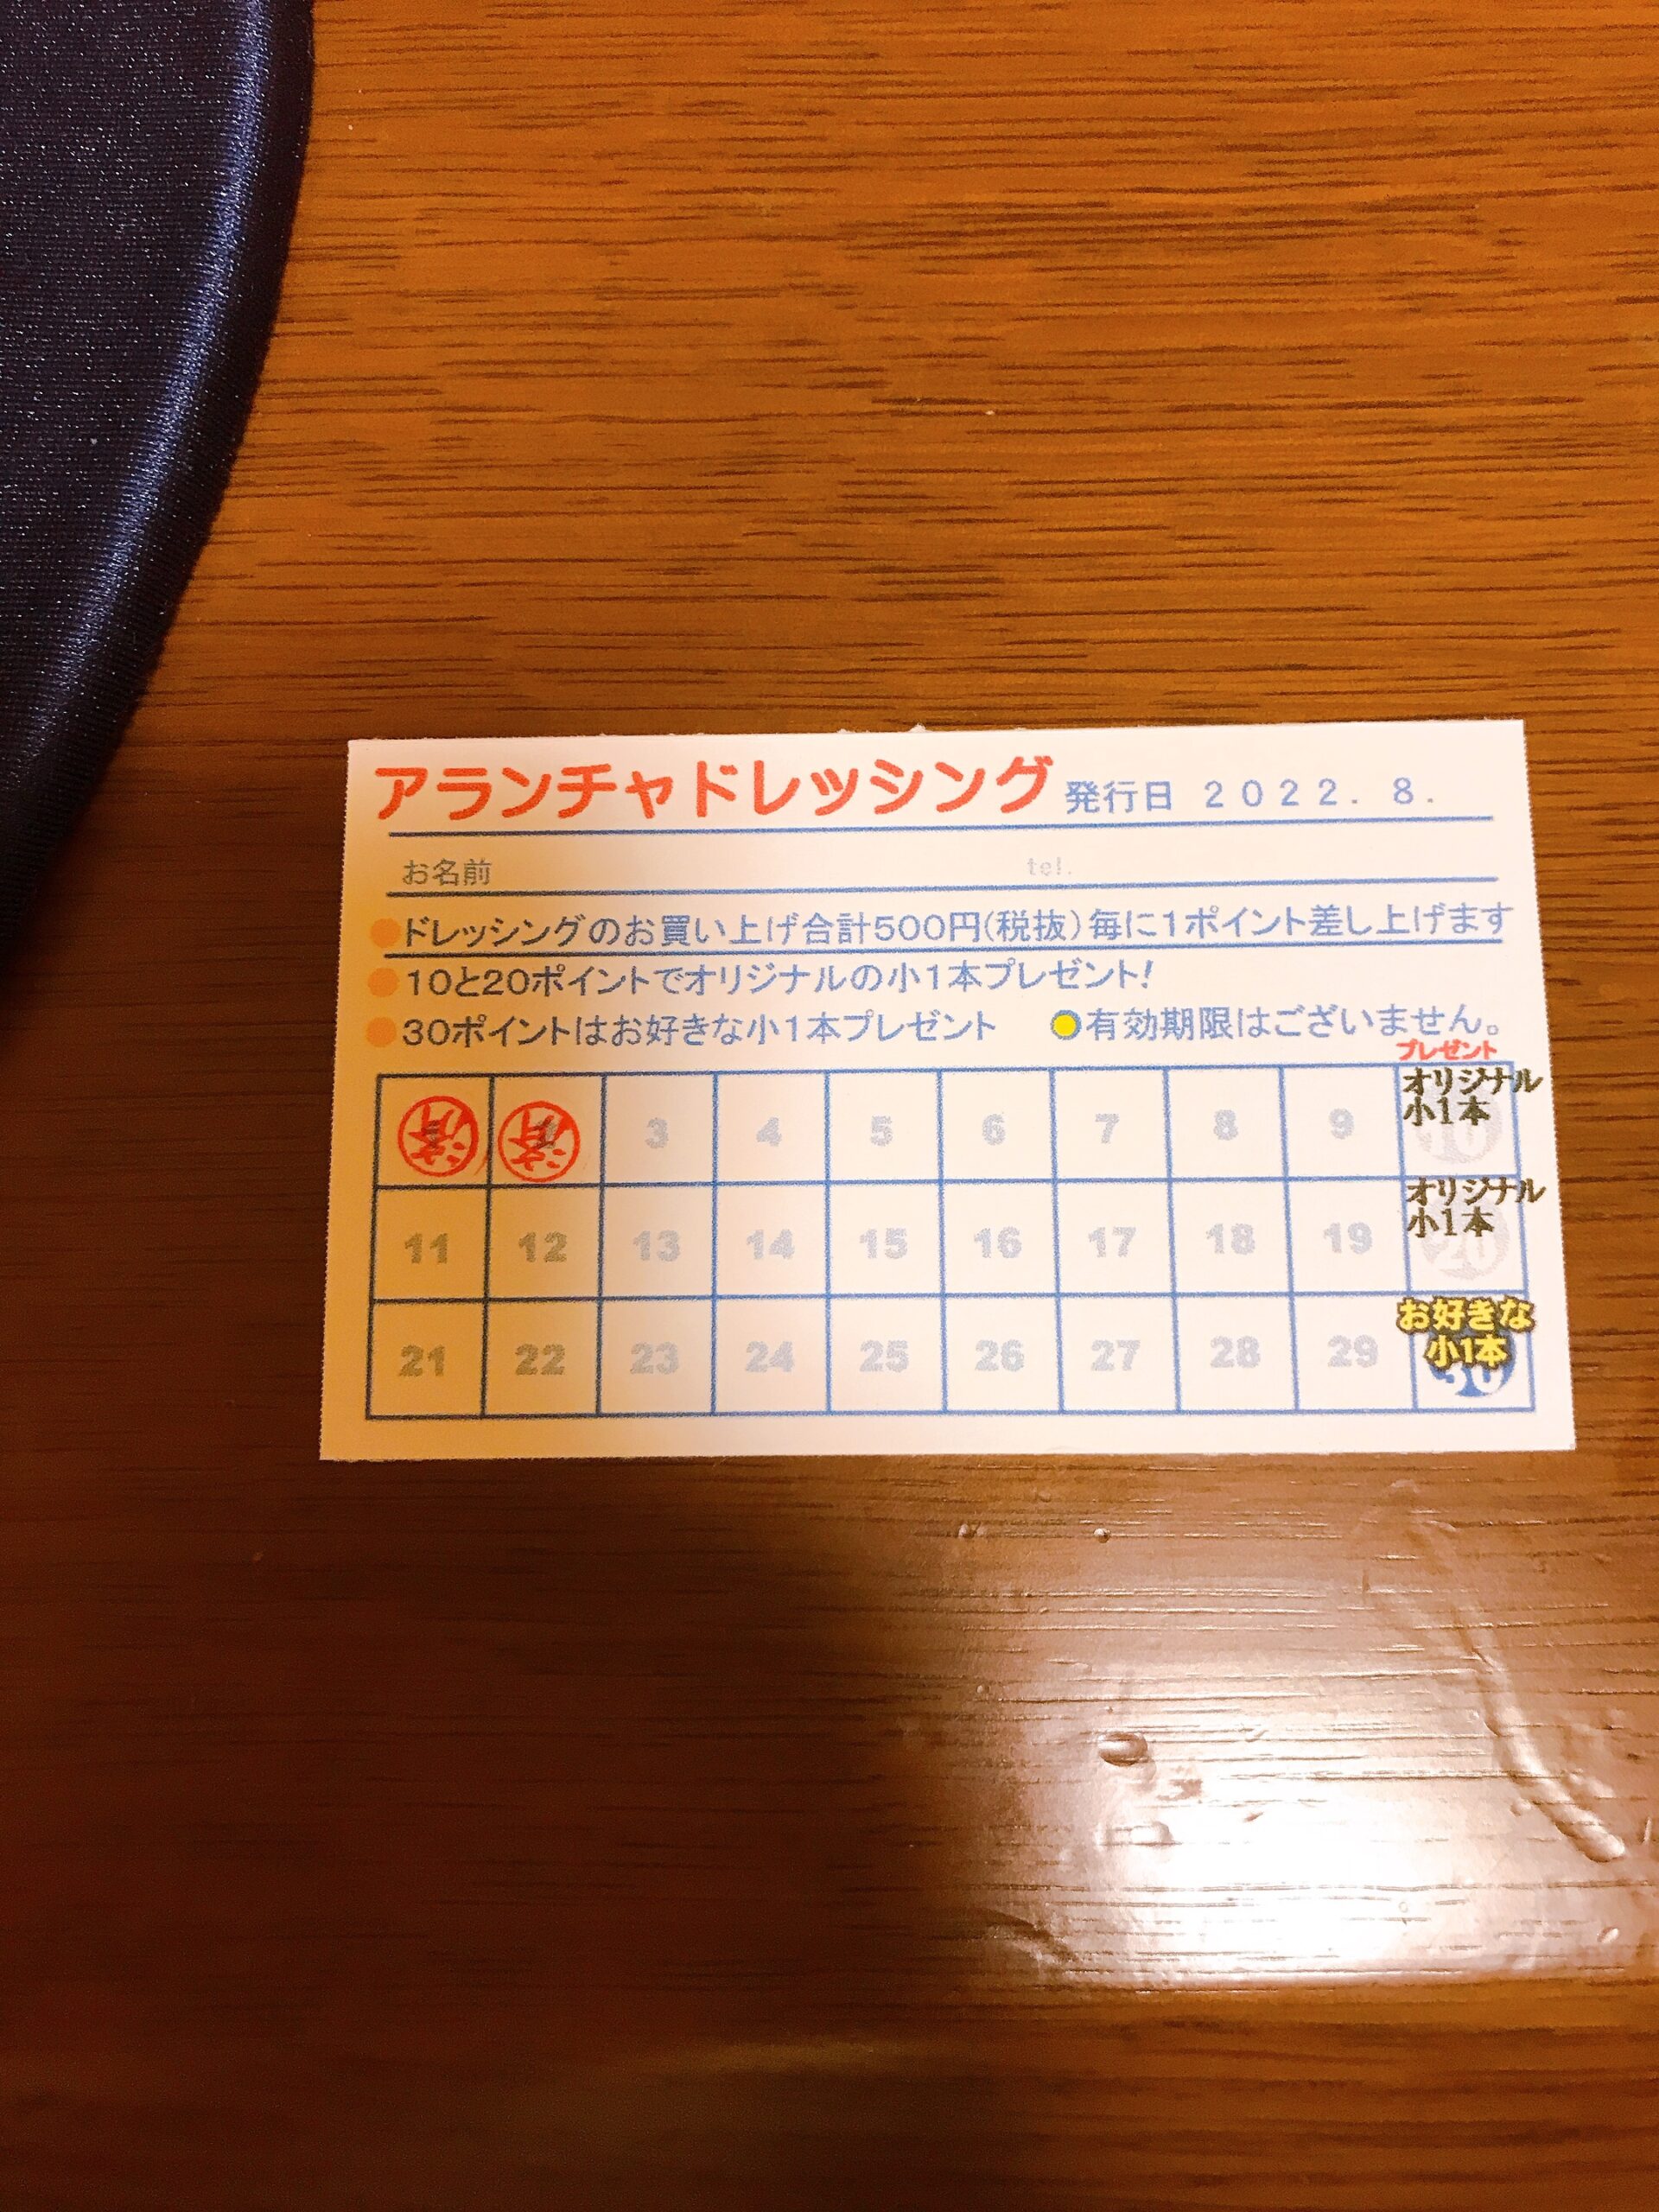 アランチャドレッシング 発行日 2022. 8.
お名前 tel.
●ドレッシングのお買い上げ合計500円(税抜)毎に1ポイント差し上げます
●10と20ポイントでオリジナルの小1本プレゼント!
●30ポイントはお好きな小1本プレゼント ●有効期限はございません。
プレゼント
済 済 3 4 5 6 7 8 9 オリジナル
小1本 10
11 12 13 14 15 16 17 18 19 オリジナル
小1本 20
21 22 23 24 25 26 27 28 29 お好きな
小1本 30